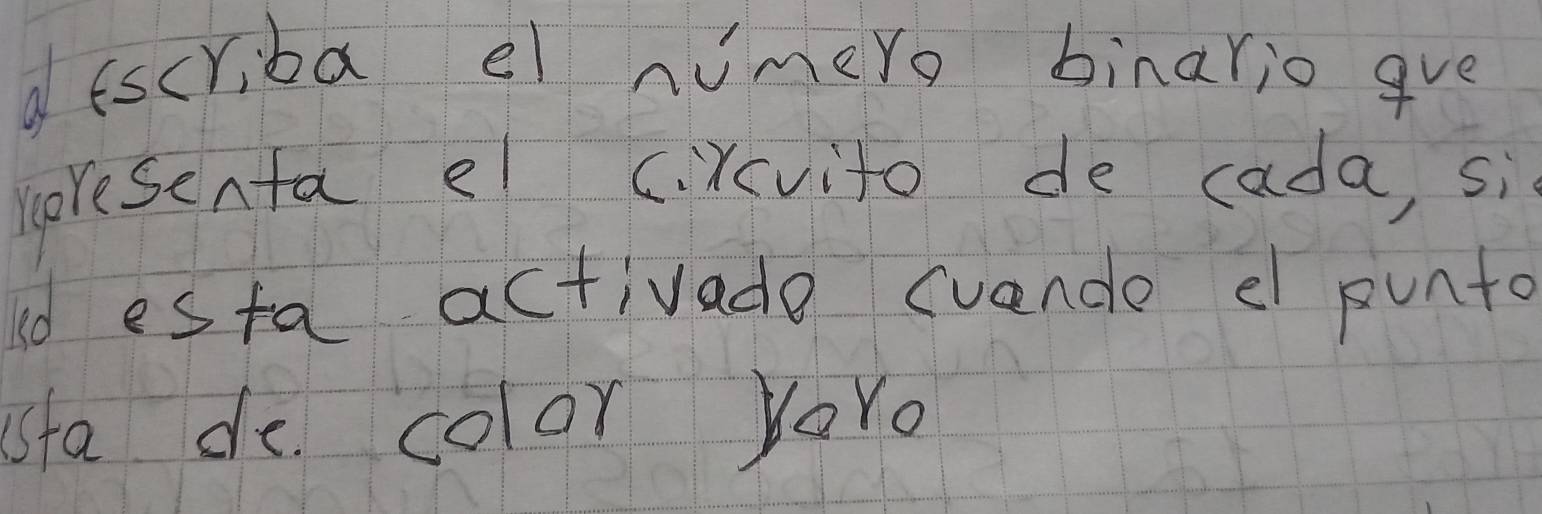 a) Escriba el número binario que
representa el circuito de cada, si
led esta activado cuando el punto
esta de. color rojo